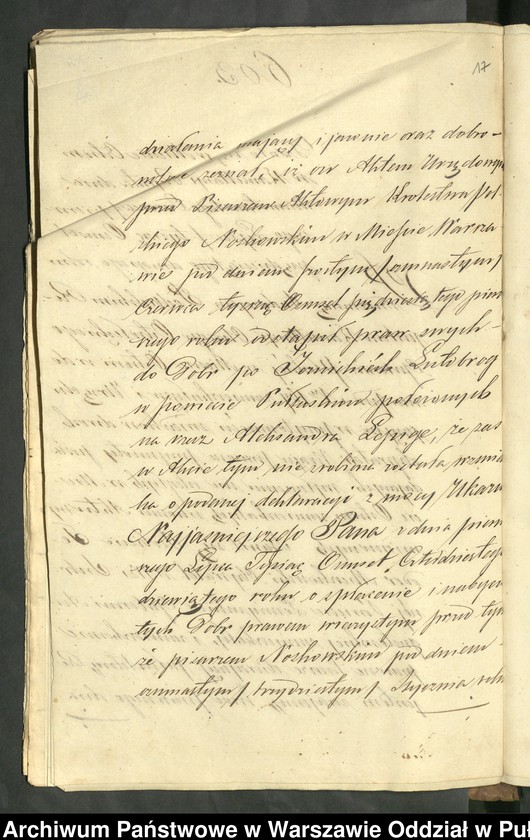 17
działania mający i jawnie oraz dobro-
wolnie zeznał, iż on Aktem Urzędownym
przed Pisarzem Aktowym Królestwa Pol-
skiego Noskowskim w Mieście Warsza
wie pod dniem szóstym / osmnastym /
Czerwca tysiąc Ośmset pięćdziesiątego pierw
szego roku odstąpił praw swych
do Dóbr po Lutobrog
w powiecie Pułtuskim położonych
na rzecz Aleksandra że zaś
w Akcie tym nie zrobiona została wzmian
ka o podanej deklaracyi z mocy Ukazu
Najjaśniejszego Pana z dnia pierw
szego Lipca Tysiąc Ośmset Czterdziestego
dziewiątego roku o spłacenie i nabycie
tych Dóbr prawem wieczystym przed tym
że pisarzem Noskowskim pod dniem
osmnastym / trzydziestym / Stycznia roku
Archiwum Państwowe w Warszawie Oddział w Puł